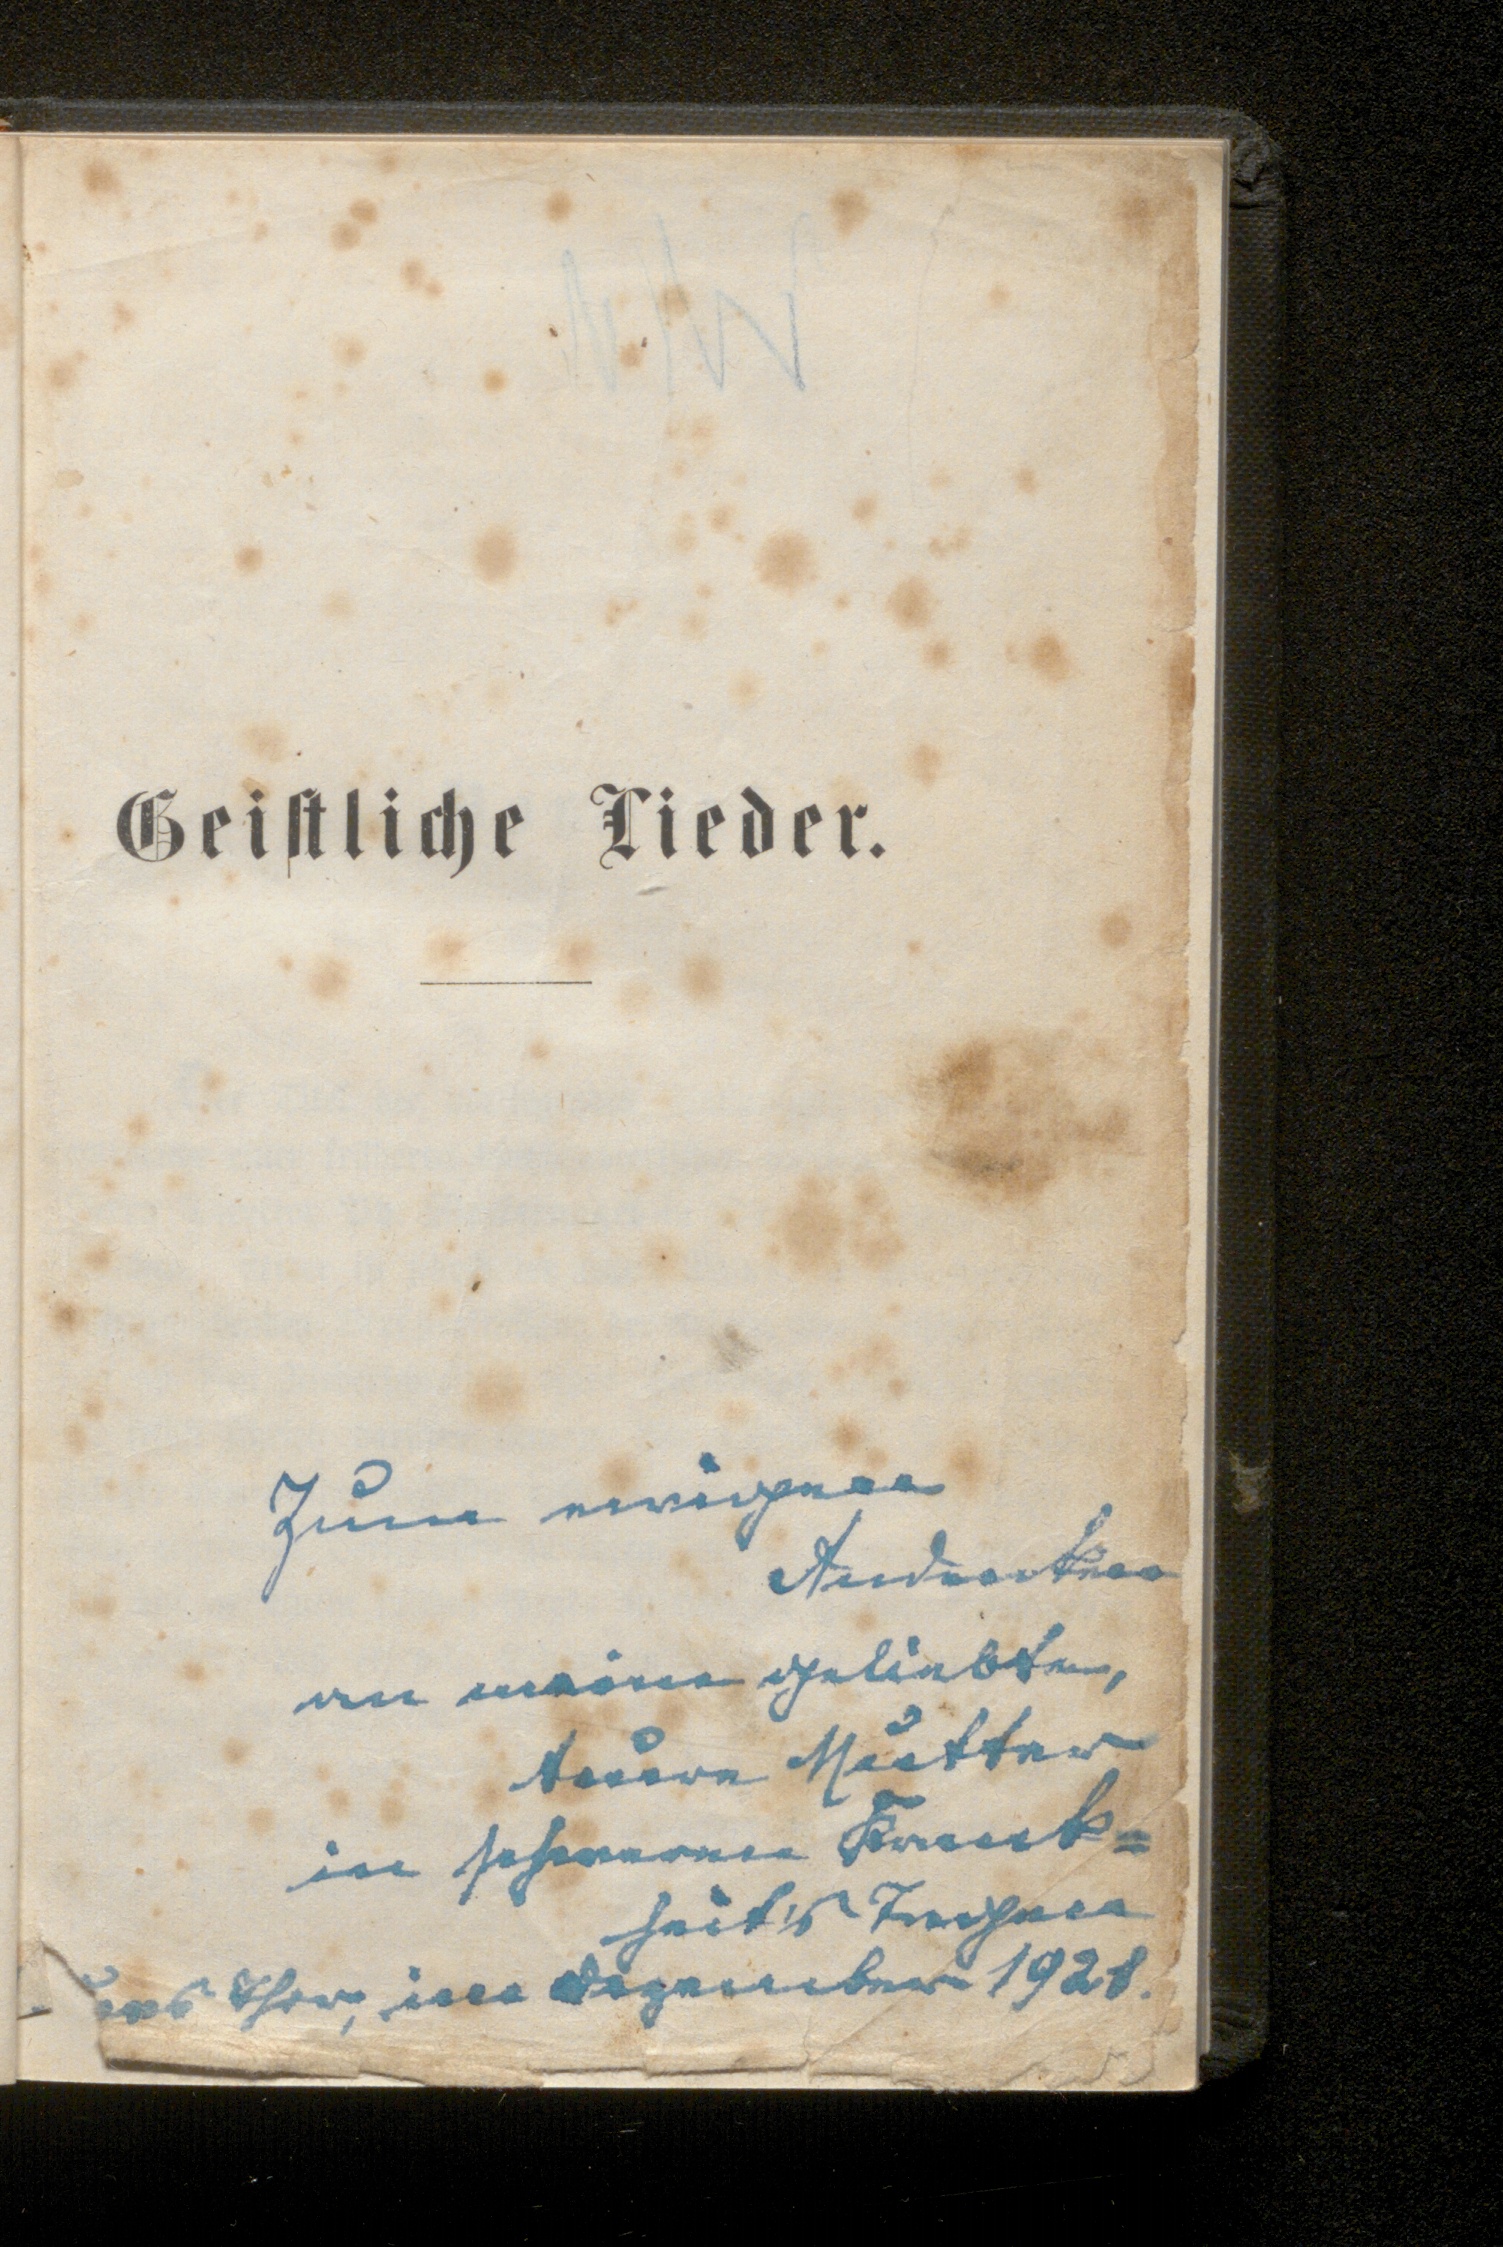 Geistliche Lieder.
Zum ewigen
Andenken
an meine geliebte,
teure Mutter
in schweren Krank=
heit's Tagen
Thor, im Dezember 1928.